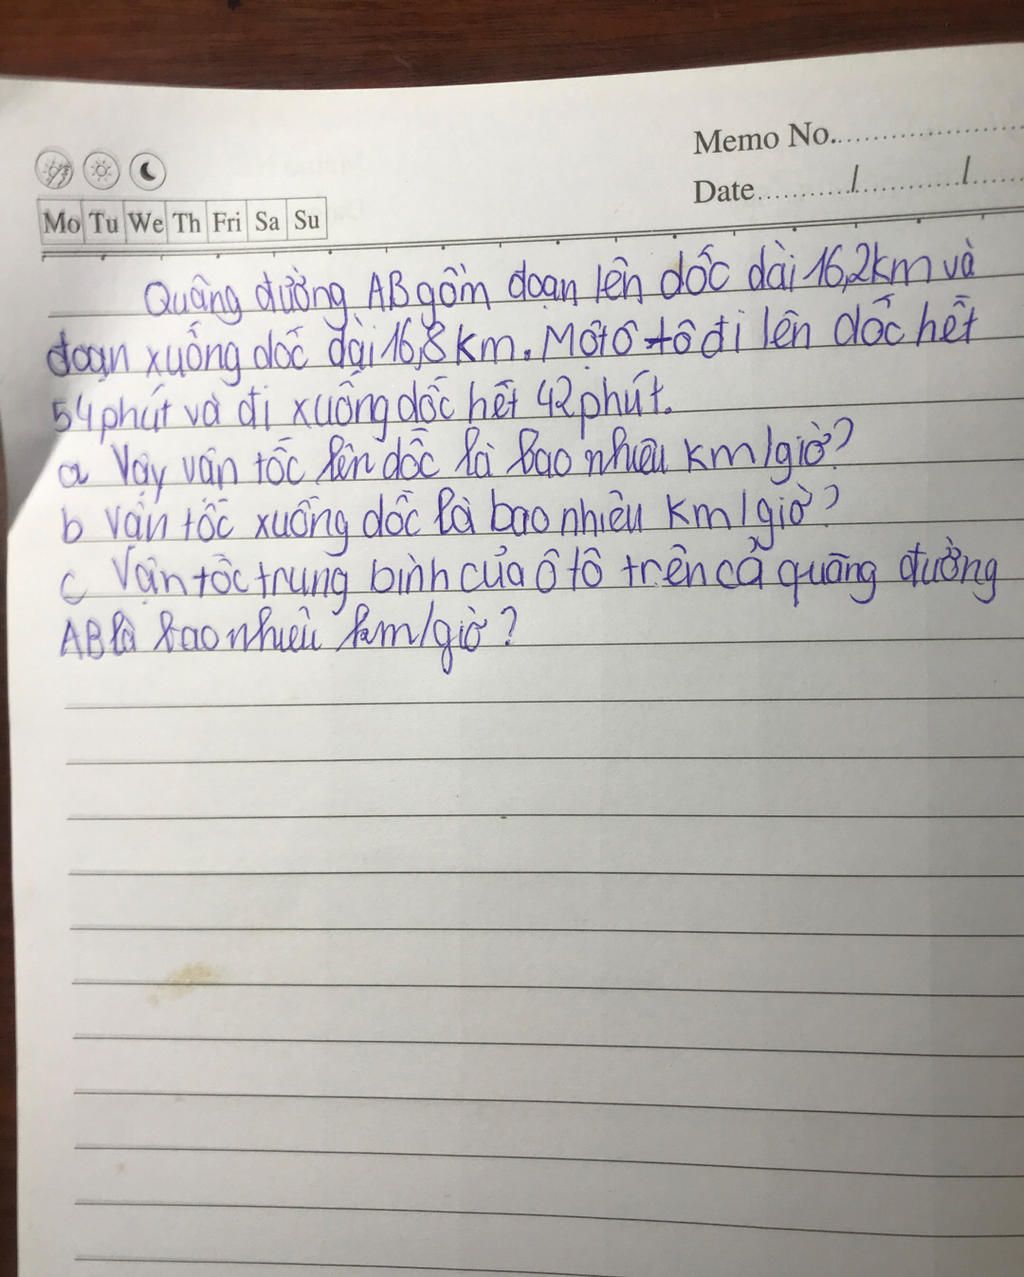 Memo No.
Date / /
Mo Tu We Th Fri Sa Su
Quãng đường AB gồm đoạn lên dốc dài 16,2km và
đoạn xuống dốc dài 16,8km. Một ô tô đi lên dốc hết
54 phút và đi xuống dốc hết 42 phút.
a Vậy vận tốc lên dốc là bao nhiêu km/giờ?
b Vận tốc xuống dốc là bao nhiêu km/giờ?
c Vận tốc trung bình của ô tô trên cả quãng đường
AB là bao nhiêu km/giờ?